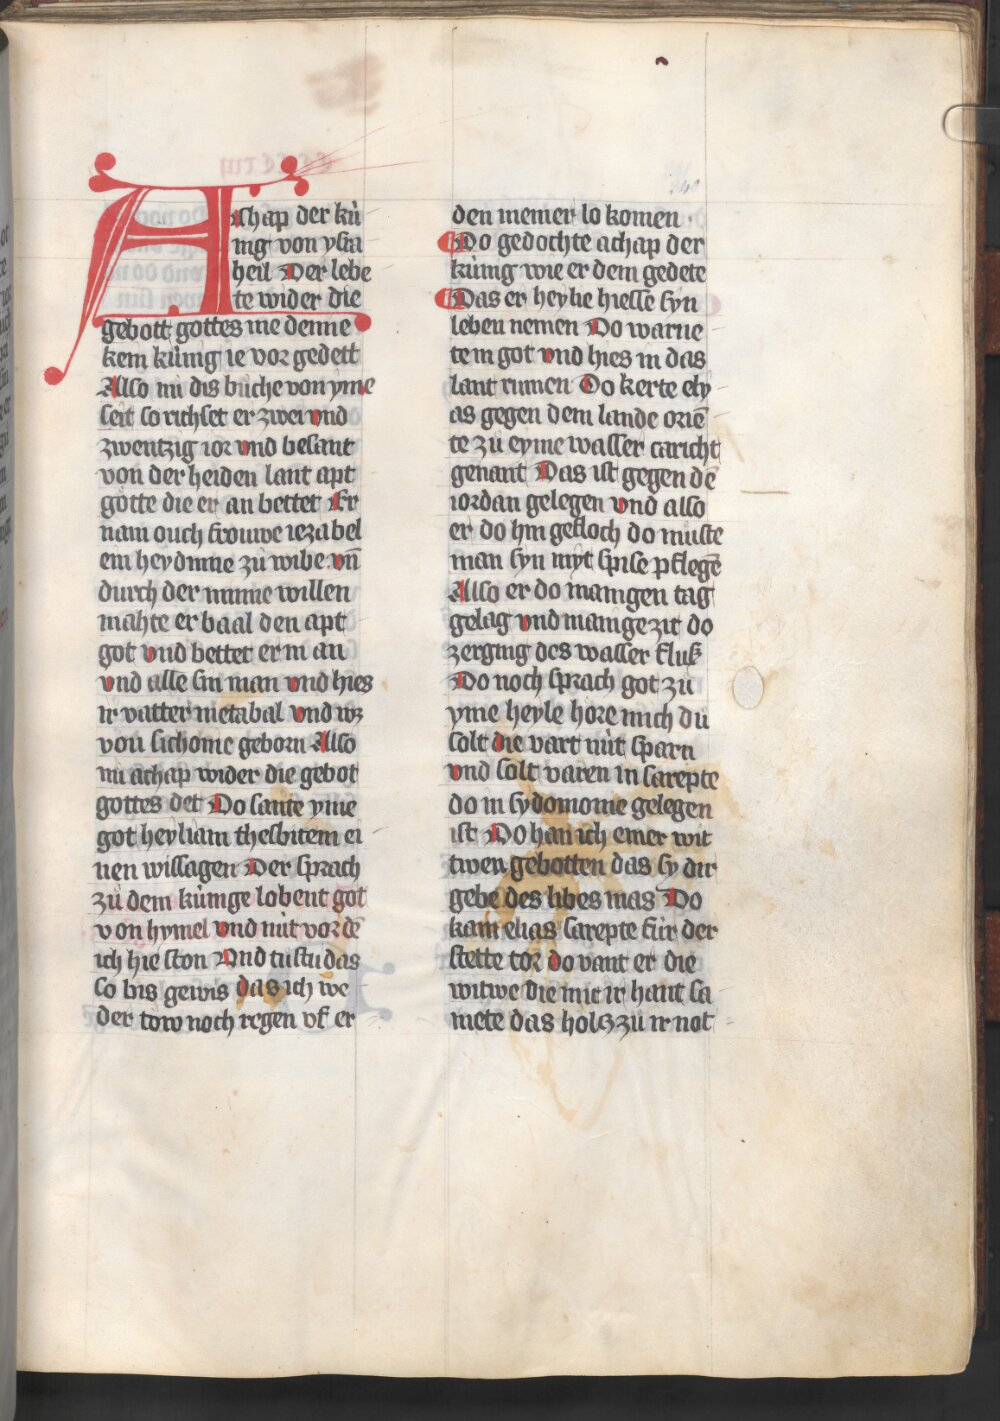 Achap der kú
nig von ysra
hell Der lebe
te wider die
gebott gottes me denne
kein kúnig ie vor gedett
Also mi dis bůche von yme
seit so richset er zwei vnd
zwentzig ior vnd besant
von der heiden lant apt
götte die er an bettet Er
nam ouch frouwe iezabel
ein heydinne zů wibe vn̄
durch der minne willen
mahte er baal den apt
got vnd bettet er in an
vnd alle sin man vnd hies
ir vatter metabal vnd wz
von sichome geborn Also
nu achap wider die gebot
gottes det Do sante yme
got heyliam thesbitem ei
nen wissagen Der sprach
zů dem kúnige lobent got
von hymel vnd nút vor dē
ich hie ston Vnd tůstu das
so bis gewis das ich we
der tow noch regen vf er
den niemer lo komen
Do gedochte achap der
kúnig wie er dem gedete
Das er helye hiesse syn
leben nemen Do warne
te in got vnd hies in das
lant rumen Do kerte ely
as gegen dem lande oriē
te zů eyme wasser caricht
genant Das ist gegen dē
iordan gelegen vnd also
er do hin gefloch do můste
man syn myt spise pflegē
Also er do manigen tag
gelag vnd manige zit do
zerging des wasser fluſz
Do noch sprach got zů
yme heyle höre mich dů
solt die vart nút sparn
vnd solt varen in sarepte
do in sydomonie gelegen
ist Do han ich einer wit
twen gebotten das sy dir
gebe des libes mas Do
kam elias sarepte fúr der
stette tor do vant er die
witwe die mit ir hant sa
mete das holtz zů ir not